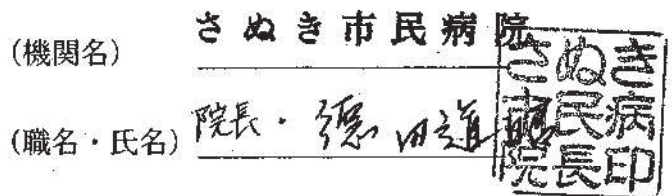 (機関名) さぬき市民病院
(職名・氏名) 院長・德田道昭
さぬき
市民病
院長印